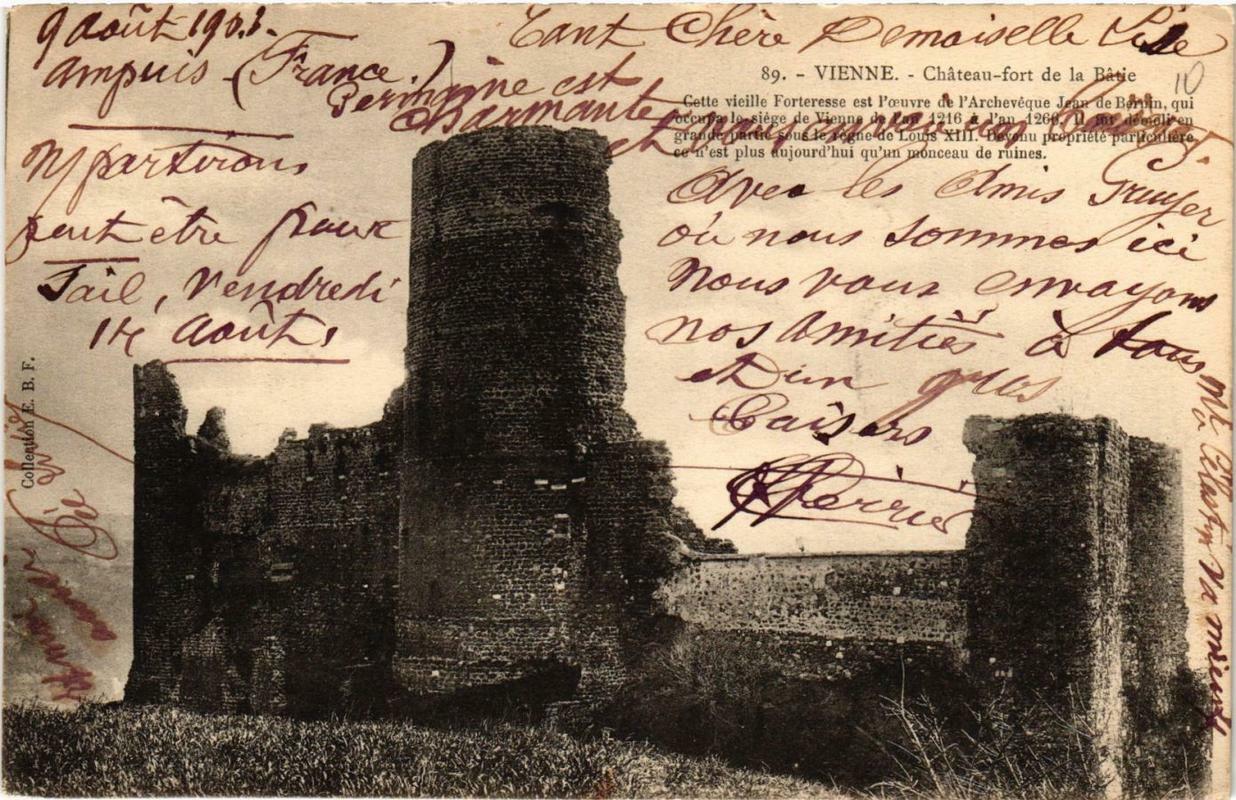 9 août 190
Ampuis (France.)
Tant Chère Demoiselle
89. - VIENNE. - Château-fort de la Bâtie
Cette vieille Forteresse est l'œuvre de l'Archevêque Jean de Bernin, qui
occupa le siége de Vienne de l'an 1216 à l'an 1266. Il fut démoli en
grande partie sous le règne de Louis XIII. Devenu propriété particulière
ce n'est plus aujourd'hui qu'un monceau de ruines.
10
Germaine est
Charmante
et
Avec les Amis Gruyer
où nous sommes ici
Nous vous envoyons
nos Amitiés à tous
et un gros
Baisers
Perrié
Ny partirons
peut être pour
Tail, Vendredi
14 août
Collection E. B. F.
va mieux